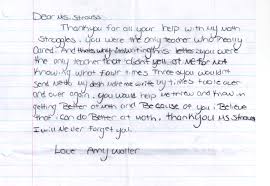 Dear Ms. Strauss
Thankyou for all your help with my math
struggles. you were the only teacher who really
Cared. And thats why Im writing this letter you were
the only teacher that didn't yell at me for not
knowing what four times three you wouldn't
send me to my desk make me write my times tables over
and over again. you would help me review and know in
getting Better at math and Because of you i Believe
that i can do Better at math. thankyou Ms Strauss
I will Never Forget you.
Love Amy Waller